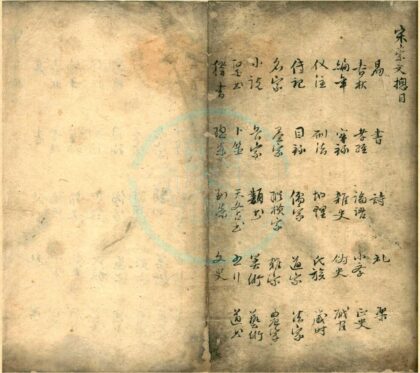 宋崇文總目
易 書 詩 礼 樂
春秋 孝經 論語 小學 正史
編年 實録 雜史 偽史 職官
儀注 刑法 地理 氏族 歲時
傳記 目録 儒家 道家 法家
名家 墨家 縱横家 雜家 農家
小説 兵家 類書 算術 藝術
醫書 卜筮 天文占書 五行 道書
釋書 總集 別集 文史